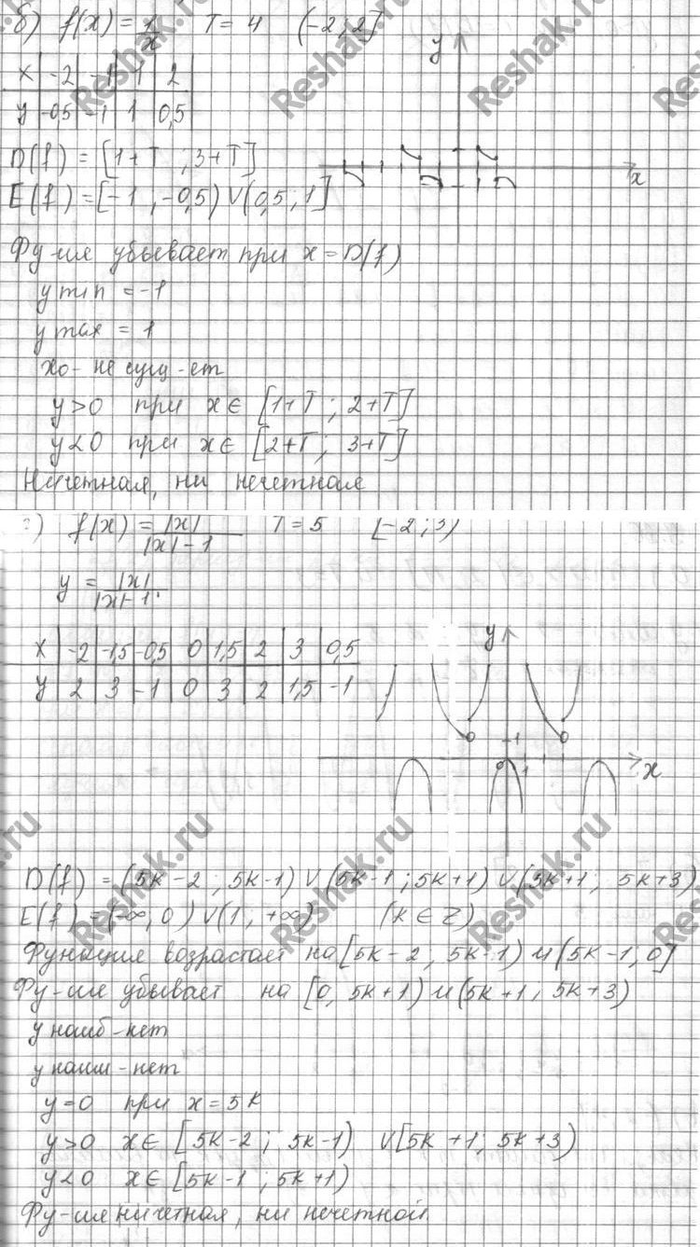 б) f(x) = 1/x T = 4 (-2; 2]
x | -2 | -1 | 1 | 2
y | -0,5 | -1 | 1 | 0,5
y
x
D(f) = [1+T ; 3+T]
E(f) = [-1, -0,5) ∨ (0,5; 1]
Фу-ия убывает при x = D(f)
y min = -1
y max = 1
x0 - не сущ-ет
y>0 при x∈ [1+T ; 2+T]
y<0 при x∈ [2+T; 3+T]
Ничетная, ни нечетная
f(x) = |x| / |x| - 1 T = 5 [-2; 3)
y = |x| / |x|-1
x | -2 | -1,5 | -0,5 | 0 | 1,5 | 2 | 3 | 0,5
y | 2 | 3 | -1 | 0 | 3 | 2 | 1,5 | -1
y
1
0
1
x
D(f) = (5k-2; 5k-1) ∨ (5k-1; 5k+1) ∨ (5k+1; 5k+3)
E(f) = (-∞, 0) ∨ (1, +∞) (k∈Z)
Функция возрастает на [5k-2; 5k-1) и (5k-1, 0]
Фу-ия убывает на [0, 5k+1) и (5k+1, 5k+3)
y наиб - нет
y наим - нет
y=0 при x=5k
y>0 x∈ [5k-2; 5k-1) ∨ [5k+1; 5k+3)
y<0 x∈ [5k-1; 5k+1)
Фу-ия ничетная, ни нечетной.
Reshak.ru
Reshak.ru
Reshak.ru
Reshak.ru
Reshak.ru
Reshak.ru